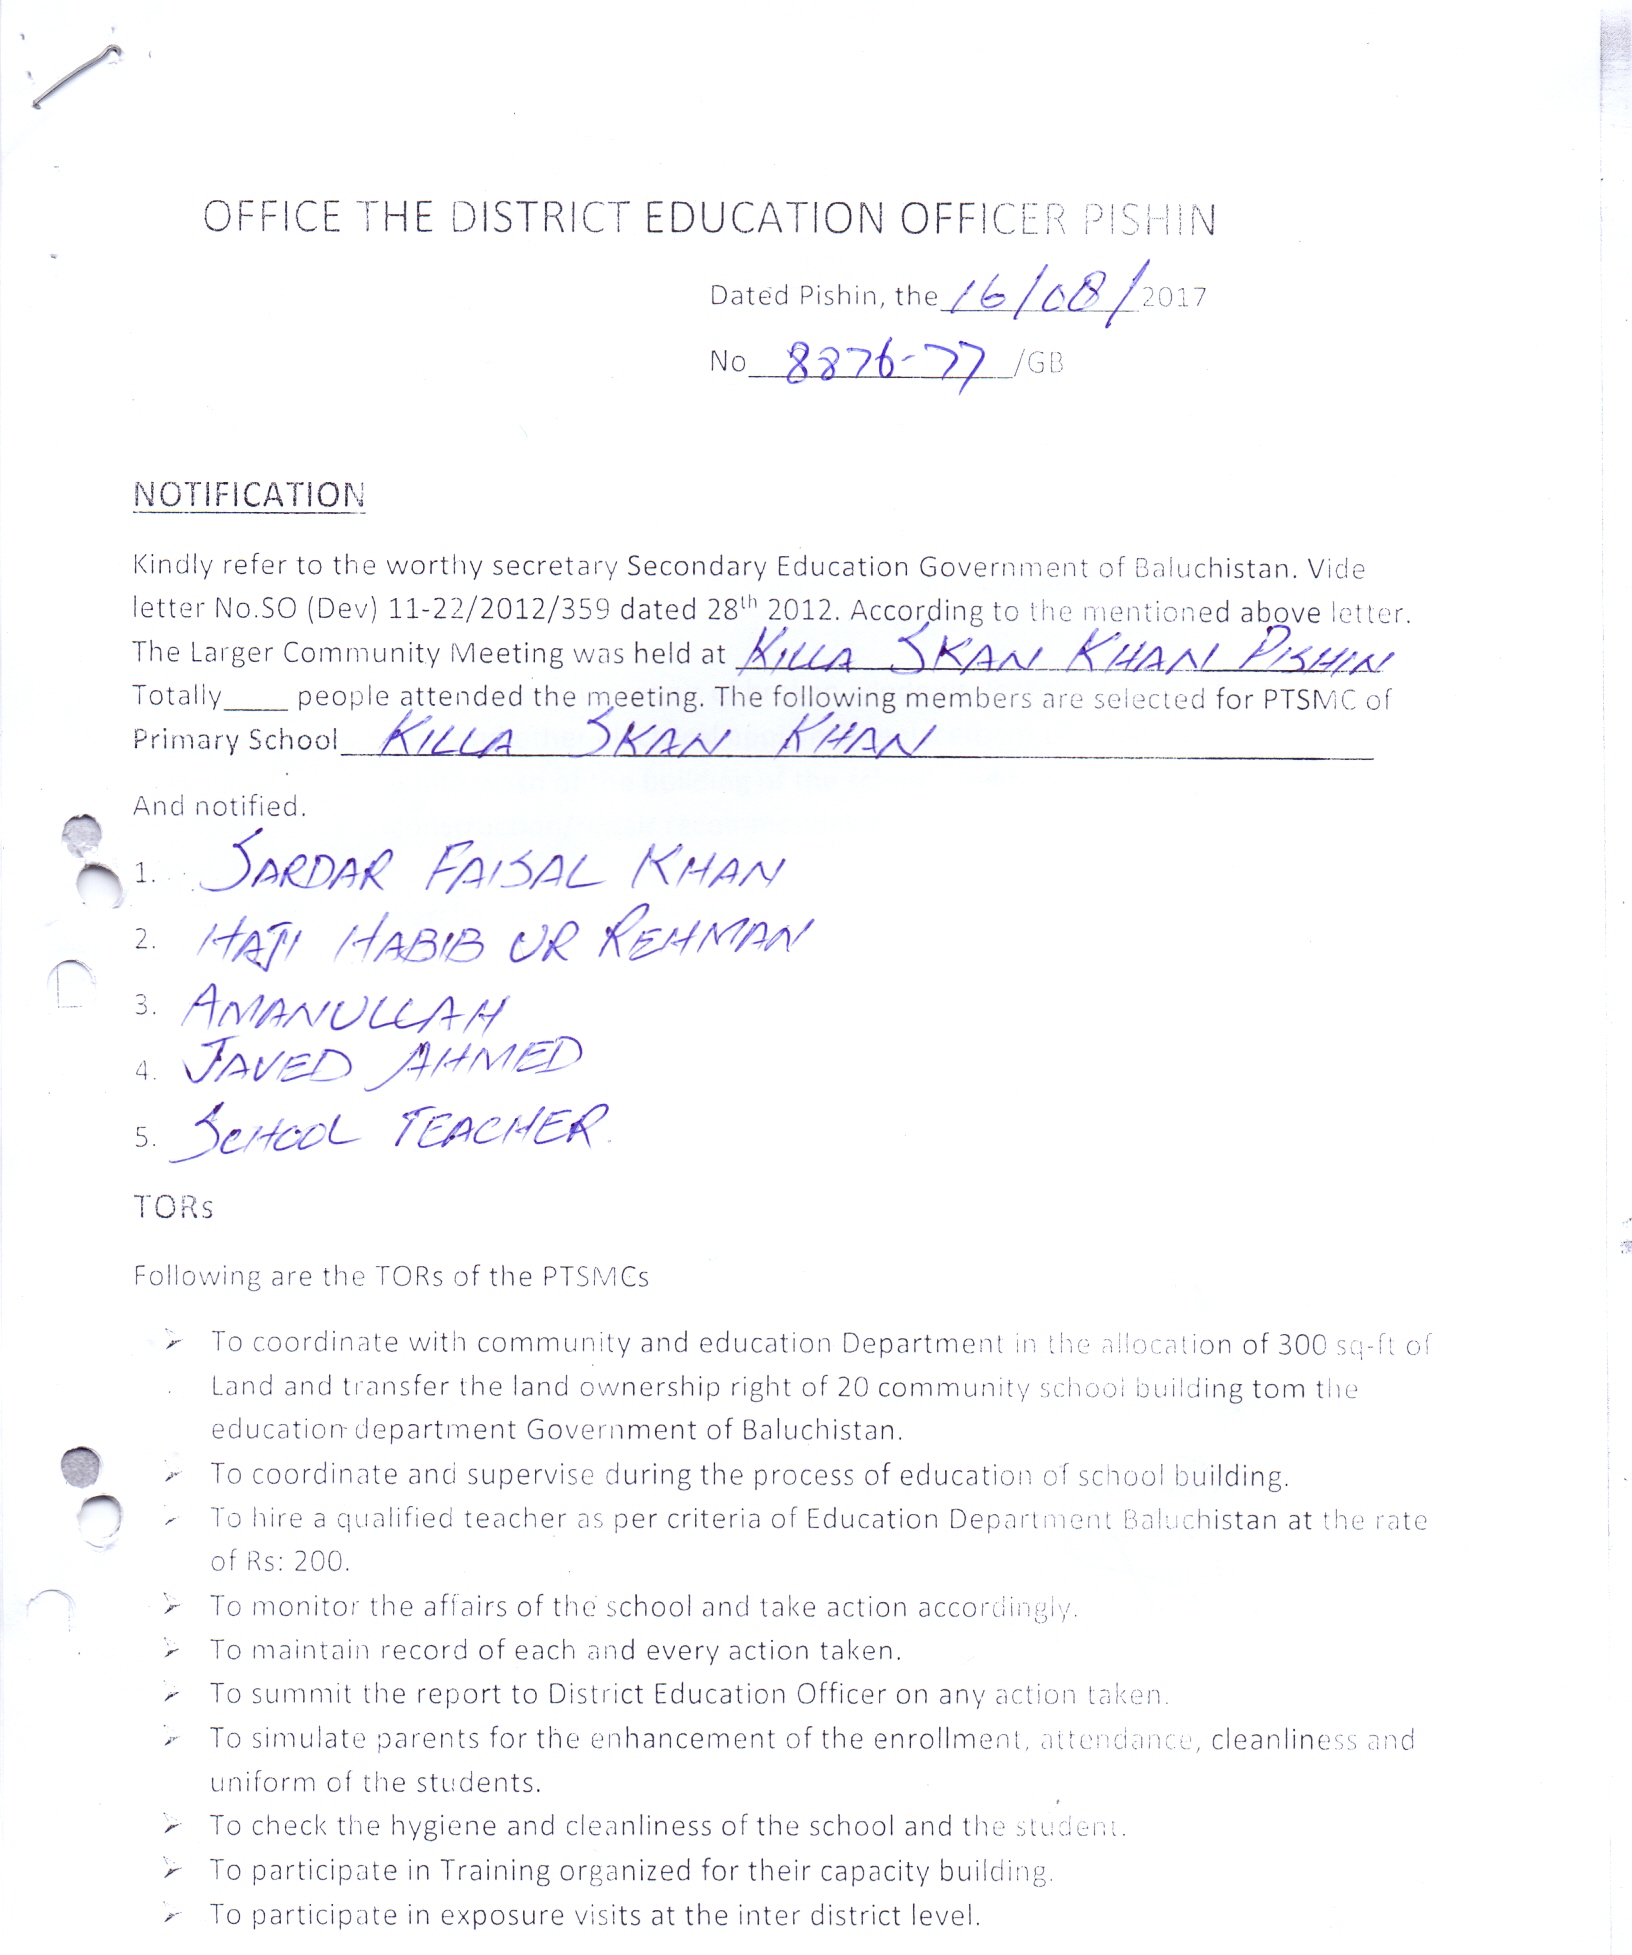 OFFICE THE DISTRICT EDUCATION OFFICER PISHIN
Dated Pishin, the 16/08/2017
No 8876-77 /GB
NOTIFICATION
Kindly refer to the worthy secretary Secondary Education Government of Baluchistan. Vide
letter No.SO (Dev) 11-22/2012/359 dated 28th 2012. According to the mentioned above letter.
The Larger Community Meeting was held at KILLA SKAN KHAN PISHIN
Totally____ people attended the meeting. The following members are selected for PTSMC of
Primary School KILLA SKAN KHAN
And notified.
1. SARDAR FAISAL KHAN
2. HAJI HABIB UR REHMAN
3. AMANULLAH
4. JAVED AHMED
5. SCHOOL TEACHER.
TORs
Following are the TORs of the PTSMCs
➢ To coordinate with community and education Department in the allocation of 300 sq-ft of
Land and transfer the land ownership right of 20 community school building tom the
education department Government of Baluchistan.
➢ To coordinate and supervise during the process of education of school building.
➢ To hire a qualified teacher as per criteria of Education Department Baluchistan at the rate
of Rs: 200.
➢ To monitor the affairs of the school and take action accordingly.
➢ To maintain record of each and every action taken.
➢ To summit the report to District Education Officer on any action taken.
➢ To simulate parents for the enhancement of the enrollment, attendance, cleanliness and
uniform of the students.
➢ To check the hygiene and cleanliness of the school and the student.
➢ To participate in Training organized for their capacity building.
➢ To participate in exposure visits at the inter district level.